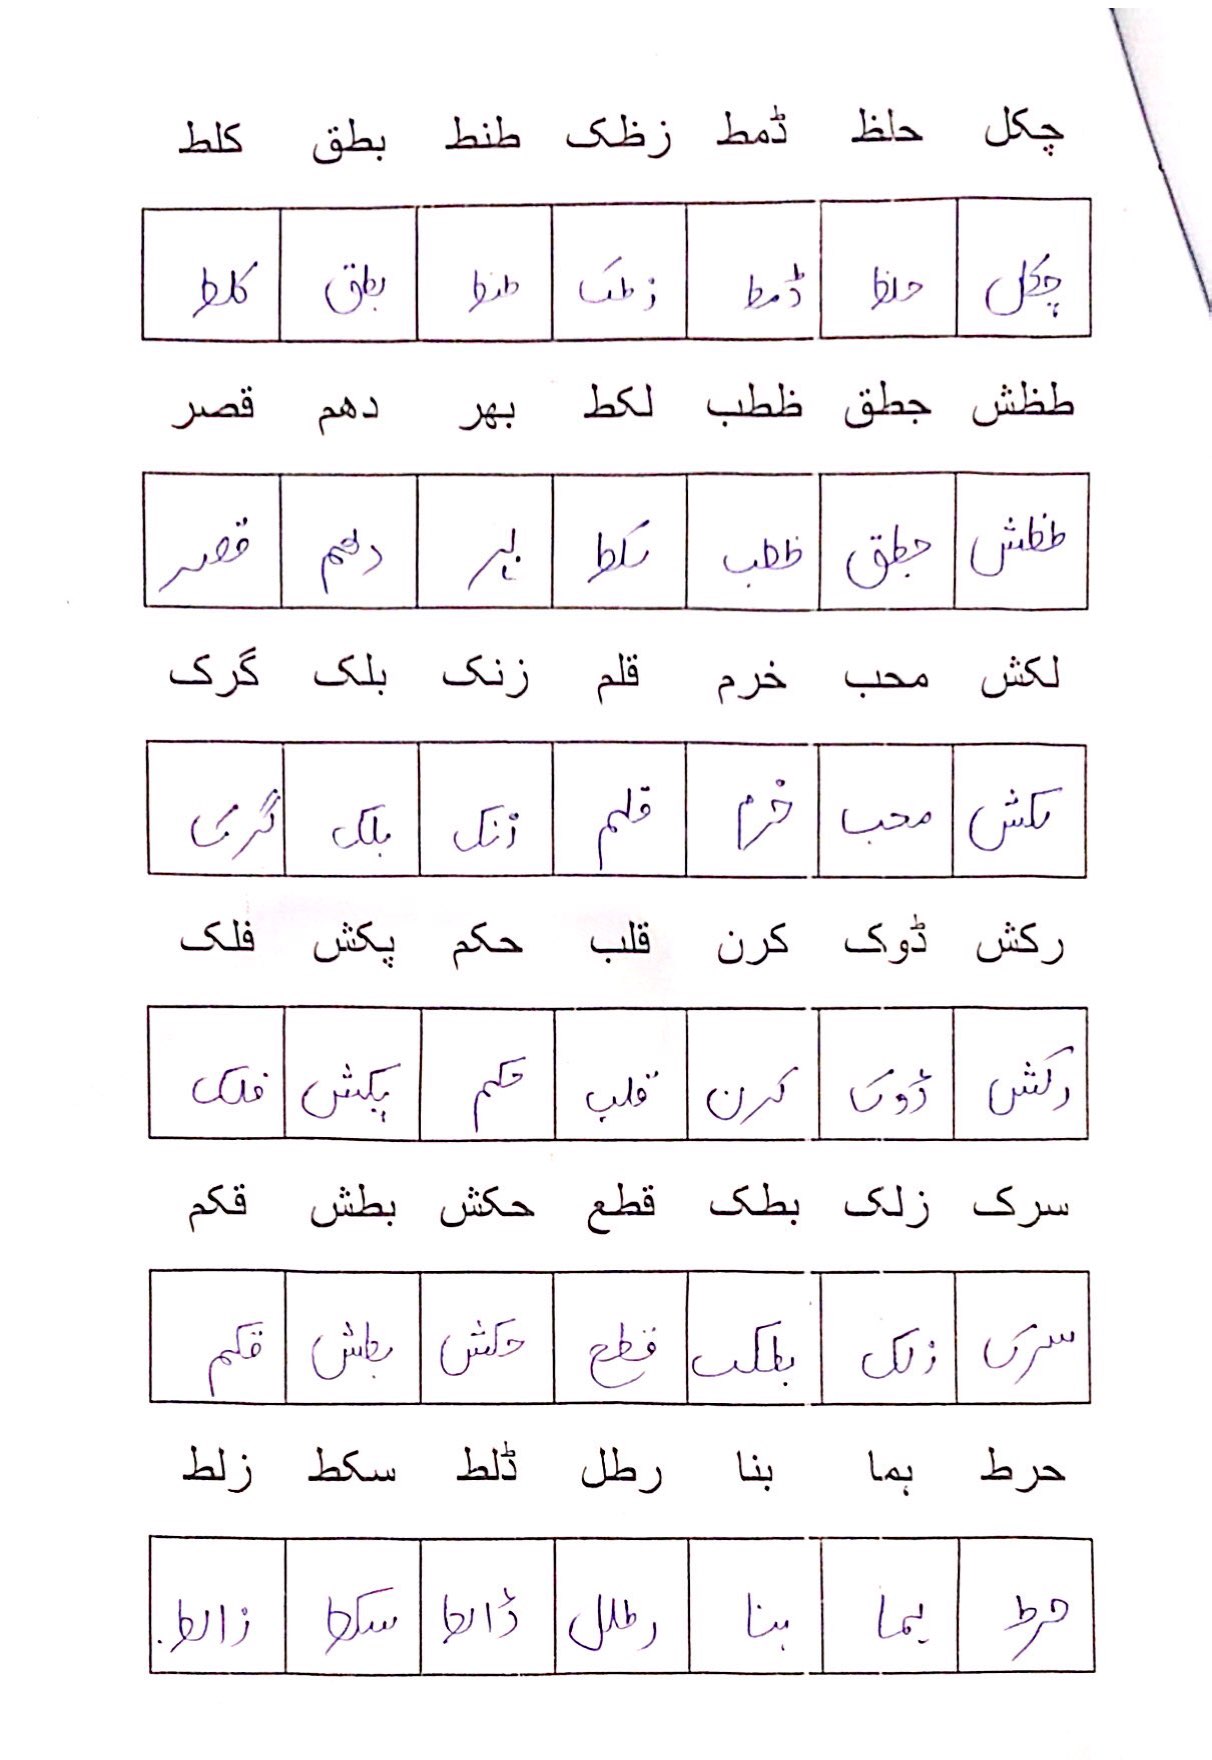 چکل حلظ ڈمط زظک طنط بطق کلط
چکل حلظ ڈمط زظک طنط بطق کلط
طظش جطق ظطب لکط بھر دھم قصر
طظش جطق ظطب لکط بہر دھم قصر
لکش محب خرم قلم زنک بلک گرک
لکش محب خرم قلم زنک بلک گرک
رکش ڈوک کرن قلب حکم پکش فلک
رکش ڈوک کرن قلب حکم پکش فلک
سرک زلک بطک قطع حکش بطش قکم
سرک زلک بطک قطع حکش بطش قکم
حرط ہما بنا رطل ڈلط سکط زلط
حرط ہما بنا رطل ڈلط سکط زلط